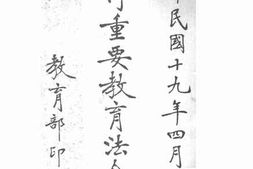 民國十九年四月
重要教育法
教育部印